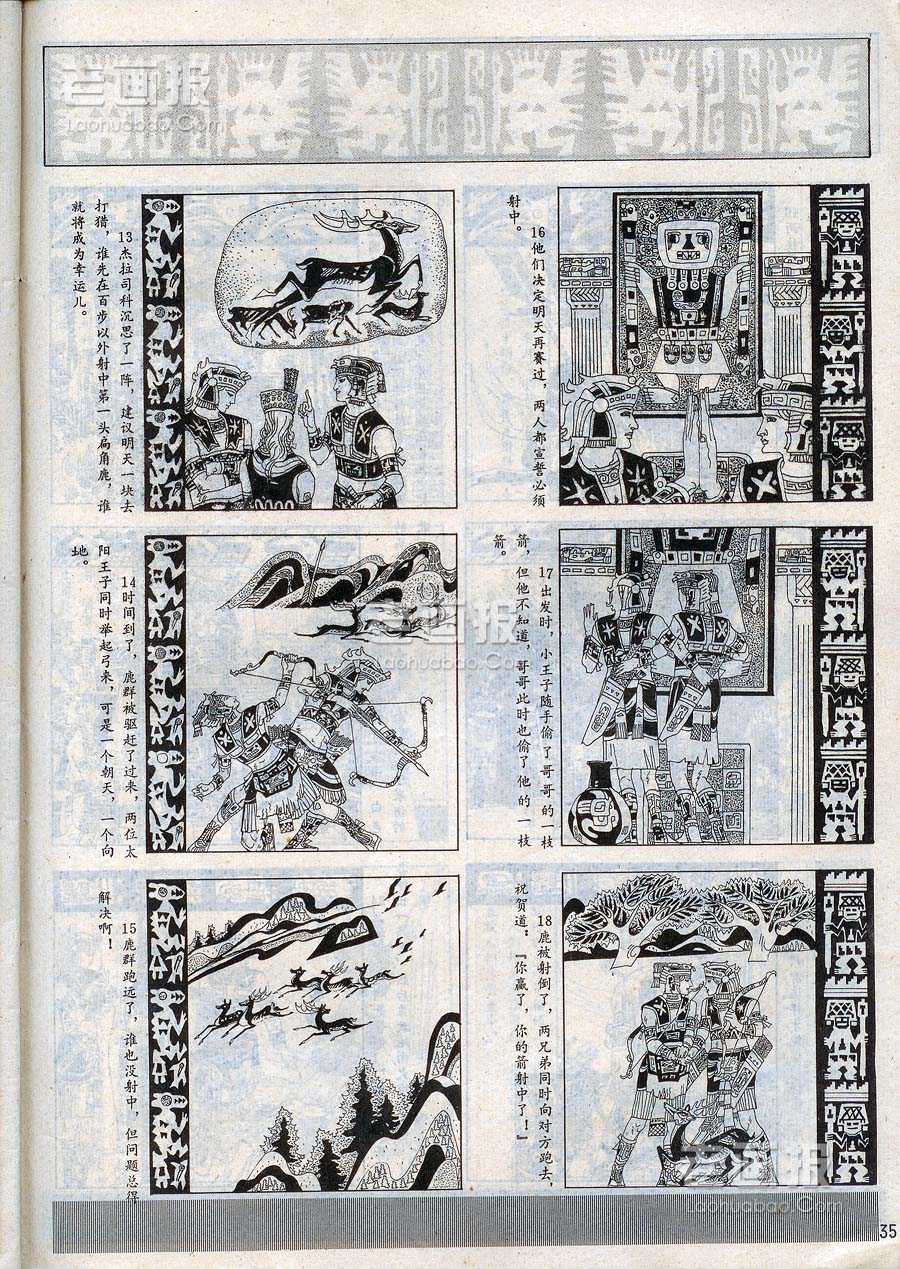 老画报
Laohuabao.Com
13杰拉司科沉思了一阵，建议明天一块去
打猎，谁先在百步以外射中第一头扁角鹿，谁
就将成为幸运儿。
14时间到了，鹿群被驱赶了过来，两位太
阳王子同时举起弓来，可是一个朝天，一个向
地。
15鹿群跑远了，谁也没射中，但问题总得
解决啊！
16他们决定明天再赛过，两人都宣誓必须
射中。
17出发时，小王子随手偷了哥哥的一枝
箭，但他不知道，哥哥此时也偷了他的一枝
箭。
18鹿被射倒了，两兄弟同时向对方跑去，
祝贺道：『你赢了，你的箭射中了！』
老画报
Laohuabao.Com
老画报
Laohuabao.Com
35